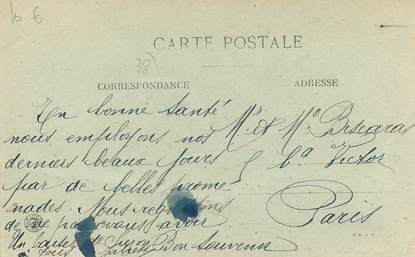 10 €
38)
CARTE POSTALE
CORRESPONDANCE
ADRESSE
En bonne santé
nous employons nos
derniers beaux jours
par de belles prome
nades. Nous regrettons
de ne pouvoir avoir
Un Bon Souvenir
à tous
Mr et Me
Victor
Paris